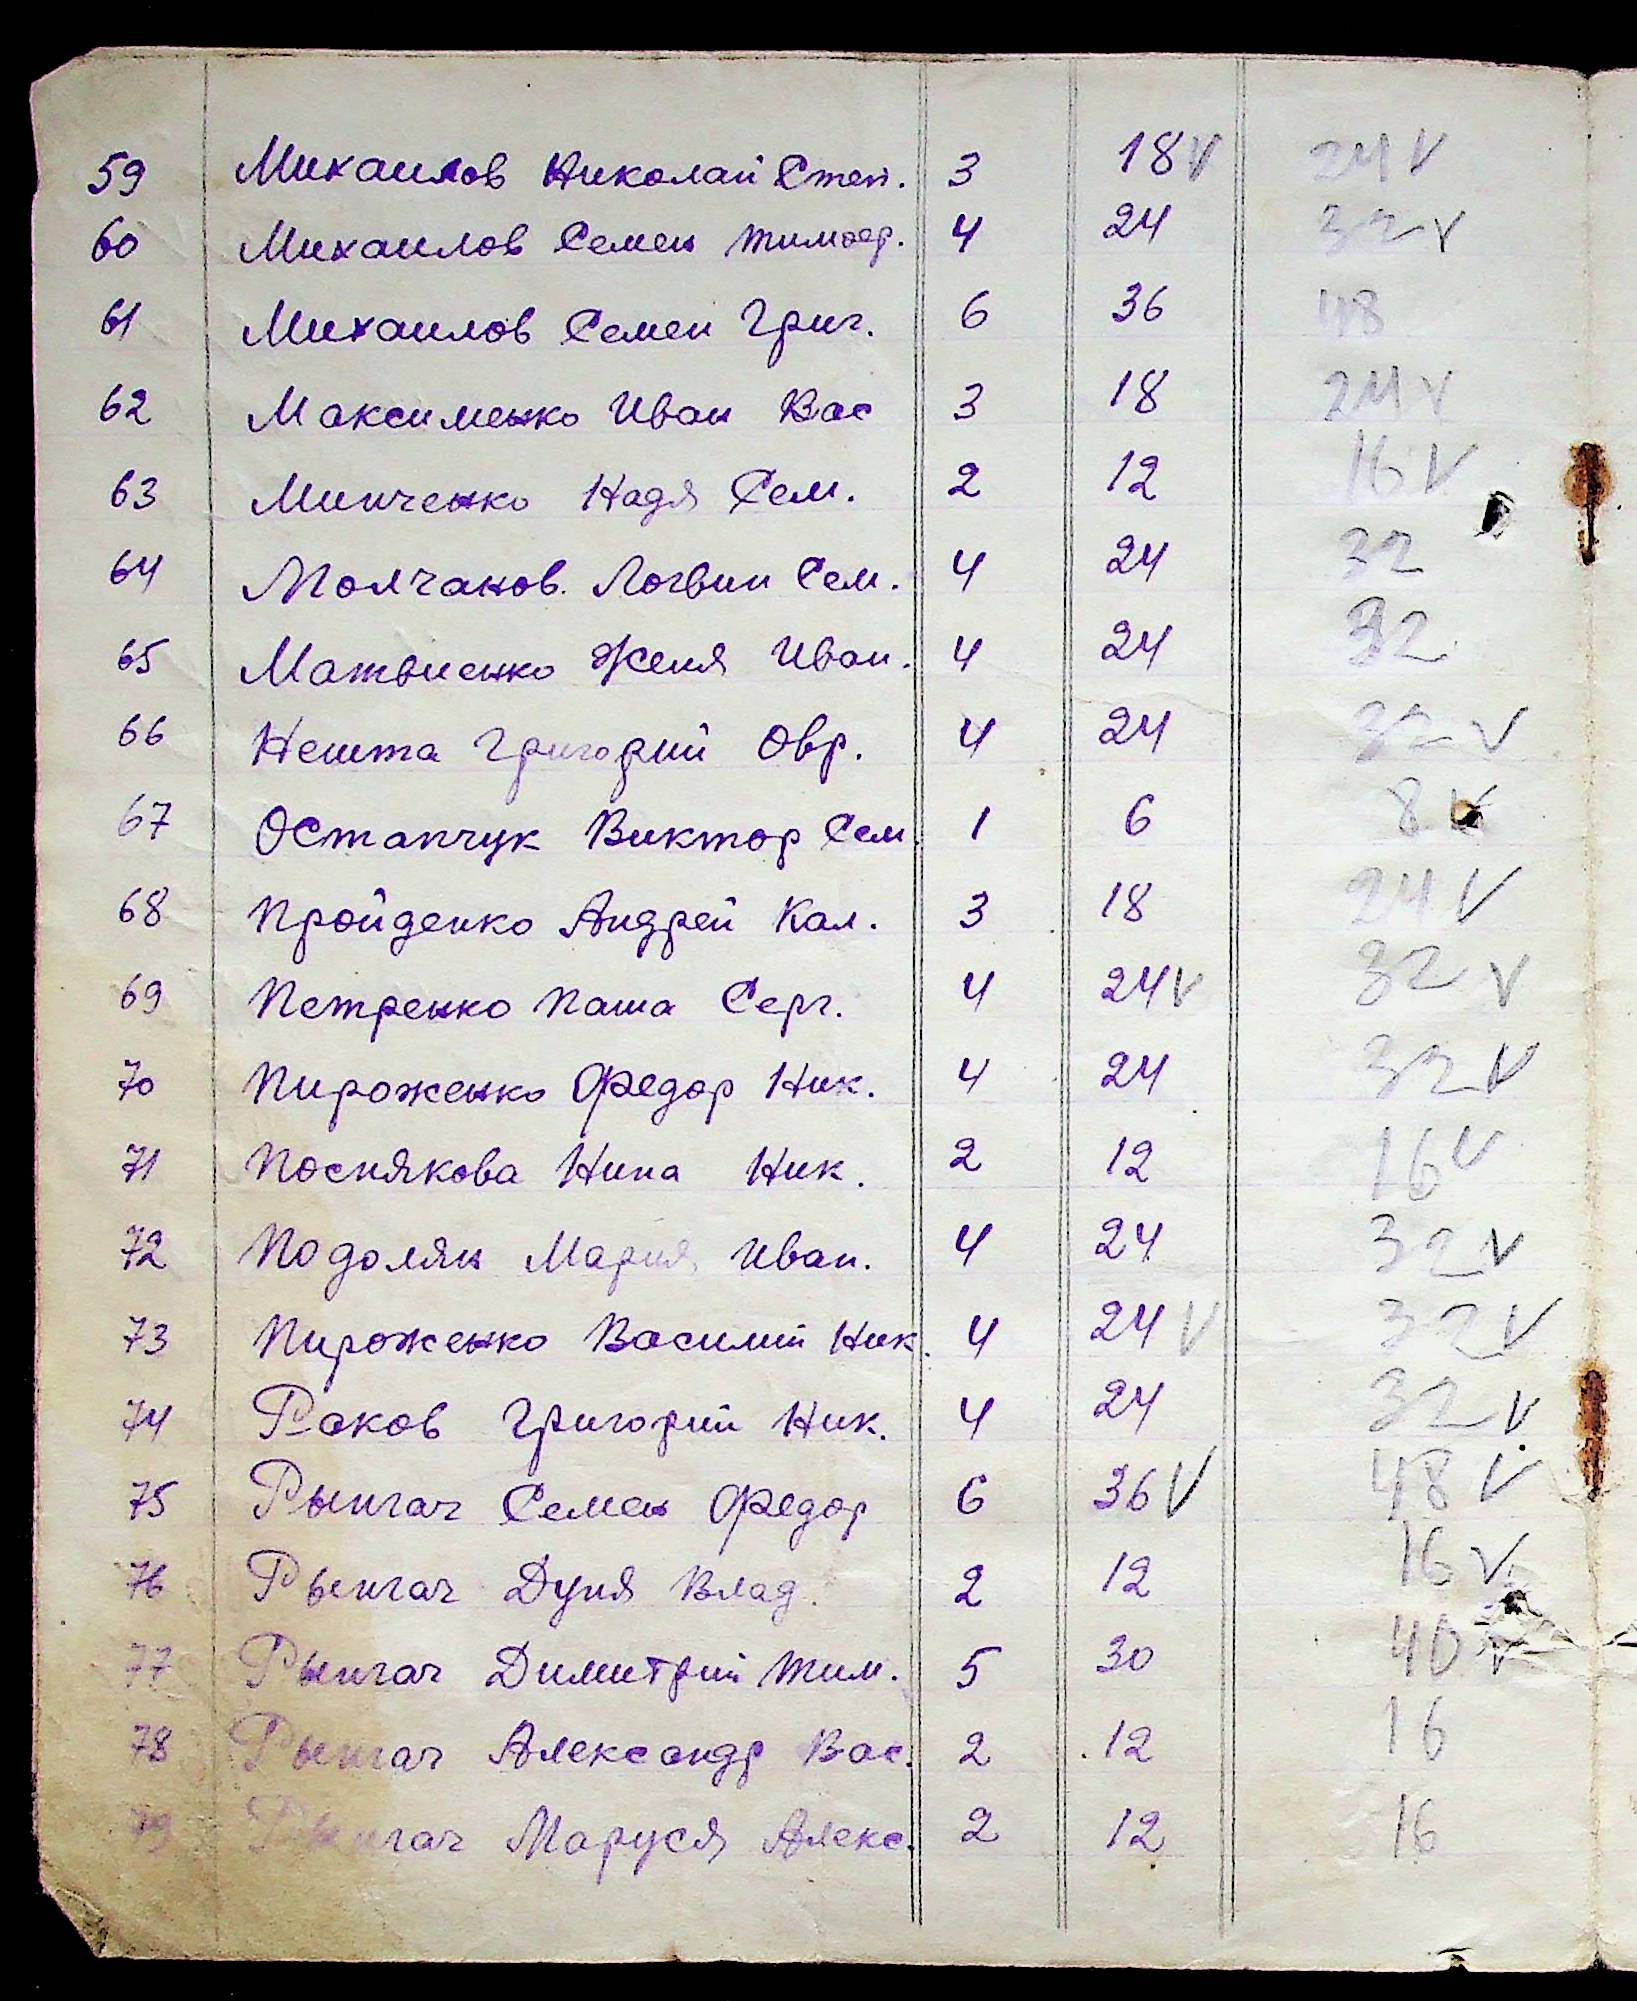 59 Михаилов Николай Степ. 3 18 V 24 V
60 Михаилов Семен Тимоф. 4 24 32 V
61 Михаилов Семен Григ. 6 36 48
62 Максименко Иван Вас 3 18 24 V
63 Минченко Надя Сем. 2 12 16 V
64 Молчанов. Логвин Сем. 4 24 32
65 Матвиенко Женя Иван. 4 24 32
66 Нешта Григорий Овр. 4 24 32 V
67 Остапчук Виктор Сем. 1 6 8 V
68 Пройденко Андрей Кал. 3 18 24 V
69 Петренко Паша Серг. 4 24 V 32 V
70 Пироженко Федор Ник. 4 24 32 V
71 Поснякова Нина Ник. 2 12 16 V
72 Подоляк Мария Иван. 4 24 32 V
73 Пироженко Василий Ник. 4 24 V 32 V
74 Раков Григорий Ник. 4 24 32 V
75 Рынгач Семен Федор 6 36 V 48 V
76 Рынгач Дуня Влад. 2 12 16 V
77 Рынгач Димитрий Тим. 5 30 40 V
78 Рынгач Александр Вас. 2 12 16
79 Рынгач Маруся Алекс. 2 12 16